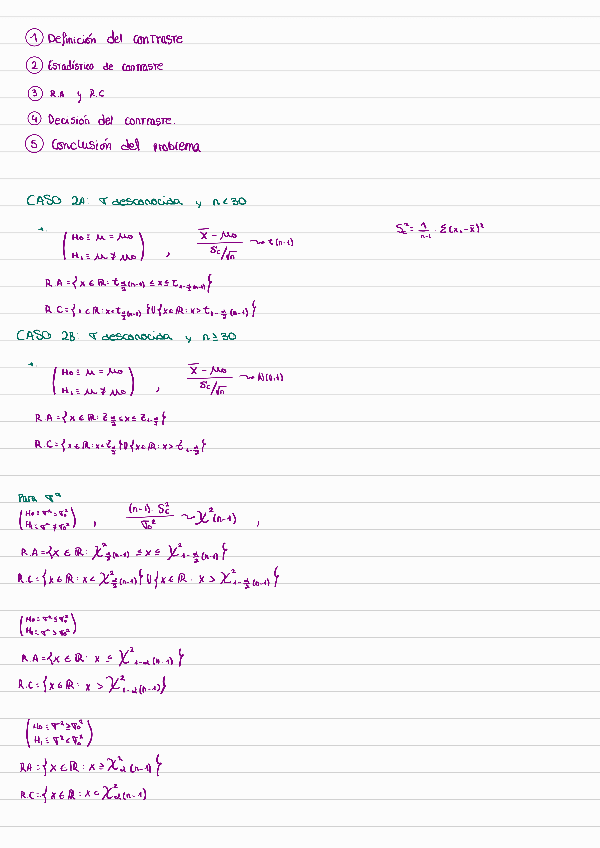 ① Definición del contraste
② Estadístico de contraste
③ R.A y R.C
④ Decisión del contraste.
⑤ Conclusión del problema
CASO 2A: σ desconocida y n<30
H₀ ≡ μ = μ₀
H₁ ≡ μ ≠ μ₀ , (x̄ - μ₀)/(Sc/√n) ~> t(n-1) Sc² = 1/(n-1) · Σ(xᵢ-x̄)²
R.A = {x ∈ ℝ: t α/2 (n-1) ≤ x ≤ t 1-α/2 (n-1)}
R.C = {x ∈ ℝ: x < t α/2 (n-1)} U {x ∈ ℝ: x > t 1-α/2 (n-1)}
CASO 2B: σ desconocida y n ≥ 30
H₀ ≡ μ = μ₀
H₁ ≡ μ ≠ μ₀ , (x̄ - μ₀)/(Sc/√n) ~> N(0,1)
R.A = {x ∈ ℝ: z α/2 ≤ x ≤ z 1-α/2}
R.C = {x ∈ ℝ: x < z α/2} U {x ∈ ℝ: x > z 1-α/2}
Para σ²
H₀ ≡ σ² = σ₀²
H₁ ≡ σ² ≠ σ₀² , (n-1)·Sc²/σ₀² ~> χ²(n-1) ,
R.A = {x ∈ ℝ: χ² α/2 (n-1) ≤ x ≤ χ² 1-α/2 (n-1)}
R.C = {x ∈ ℝ: x < χ² α/2 (n-1)} U {x ∈ ℝ: x > χ² 1-α/2 (n-1)}
H₀ ≡ σ² ≤ σ₀²
H₁ ≡ σ² > σ₀²
R.A = {x ∈ ℝ: x ≤ χ² 1-α (n-1)}
R.C = {x ∈ ℝ: x > χ² 1-α (n-1)}
H₀ ≡ σ² ≥ σ₀²
H₁ ≡ σ² < σ₀²
R.A = {x ∈ ℝ: x ≥ χ² α (n-1)}
R.C = {x ∈ ℝ: x < χ² α (n-1)